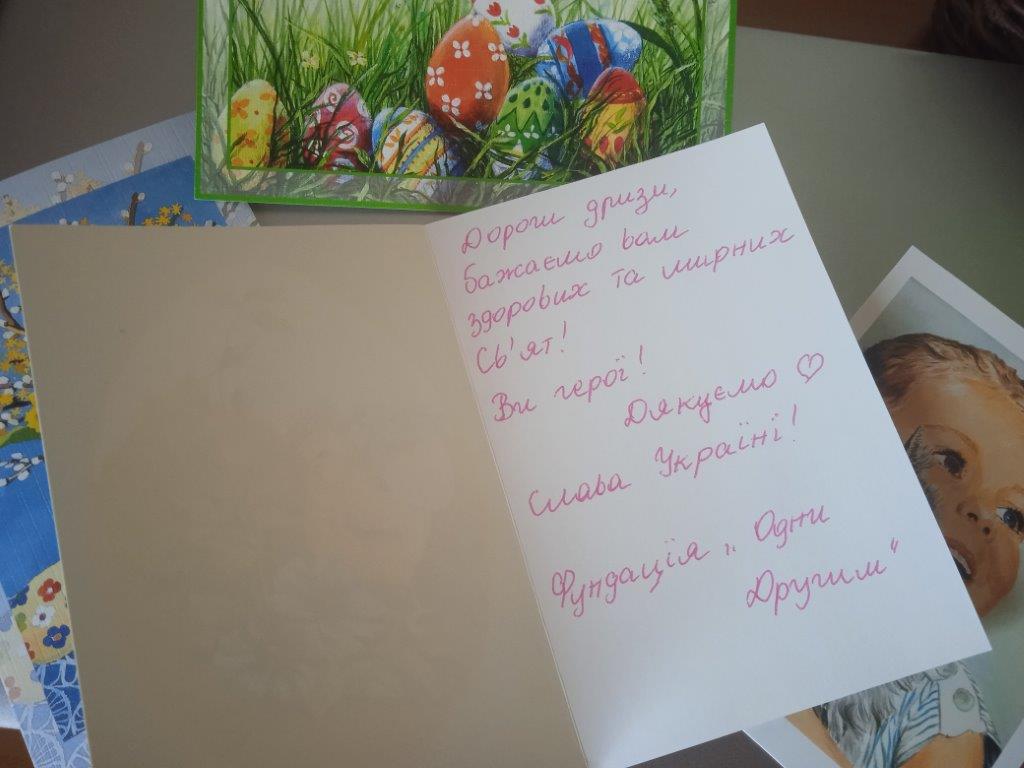 Дороги друзи,
бажаємо вам
здорових та мирних
Сь'ят!
Ви герої!
Дякуємо ♡
Слава Україні!
Фундація „Одни
Другим"